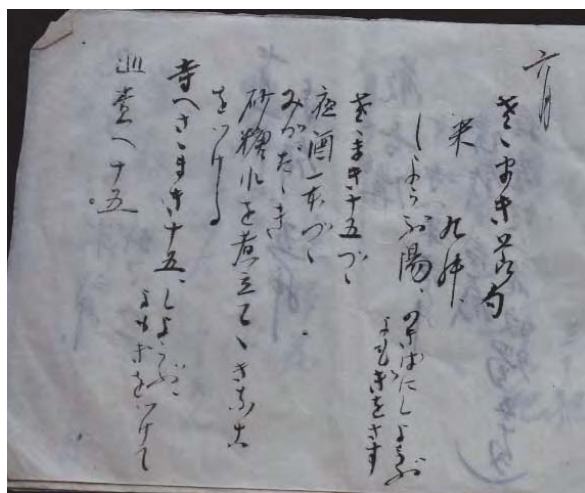 六月
さゝまき節句
米 九升
しようぶ湯、のきばにしようぶ
よもぎをさす
さゝまき十五づゝ
夜酒一本づゝ
みがだゝき
砂糖水を煮立てゝきな粉
をつける
寺へさゝまき十五、しようぶ、
よもぎをつけて
堂へ十五。